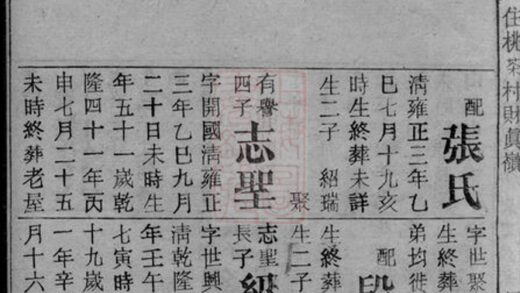 住桃茶村財眞嶺
配 張氏
清雍正三年乙
巳七月十九亥
時生終葬未詳
生二子 紹瑞
聚
有譽
四子
志聖
字開國清雍正
三年乙巳九月
二十日未時生
年五十一歲乾
隆四十一年丙
申七月二十五
未時終葬老屋
字世聚
生終葬
弟均徙
配 段
生終葬
生二子
志聖
長子
紹
字世興
清乾隆
年壬午
七寅時
十九歲
一年辛
月十六